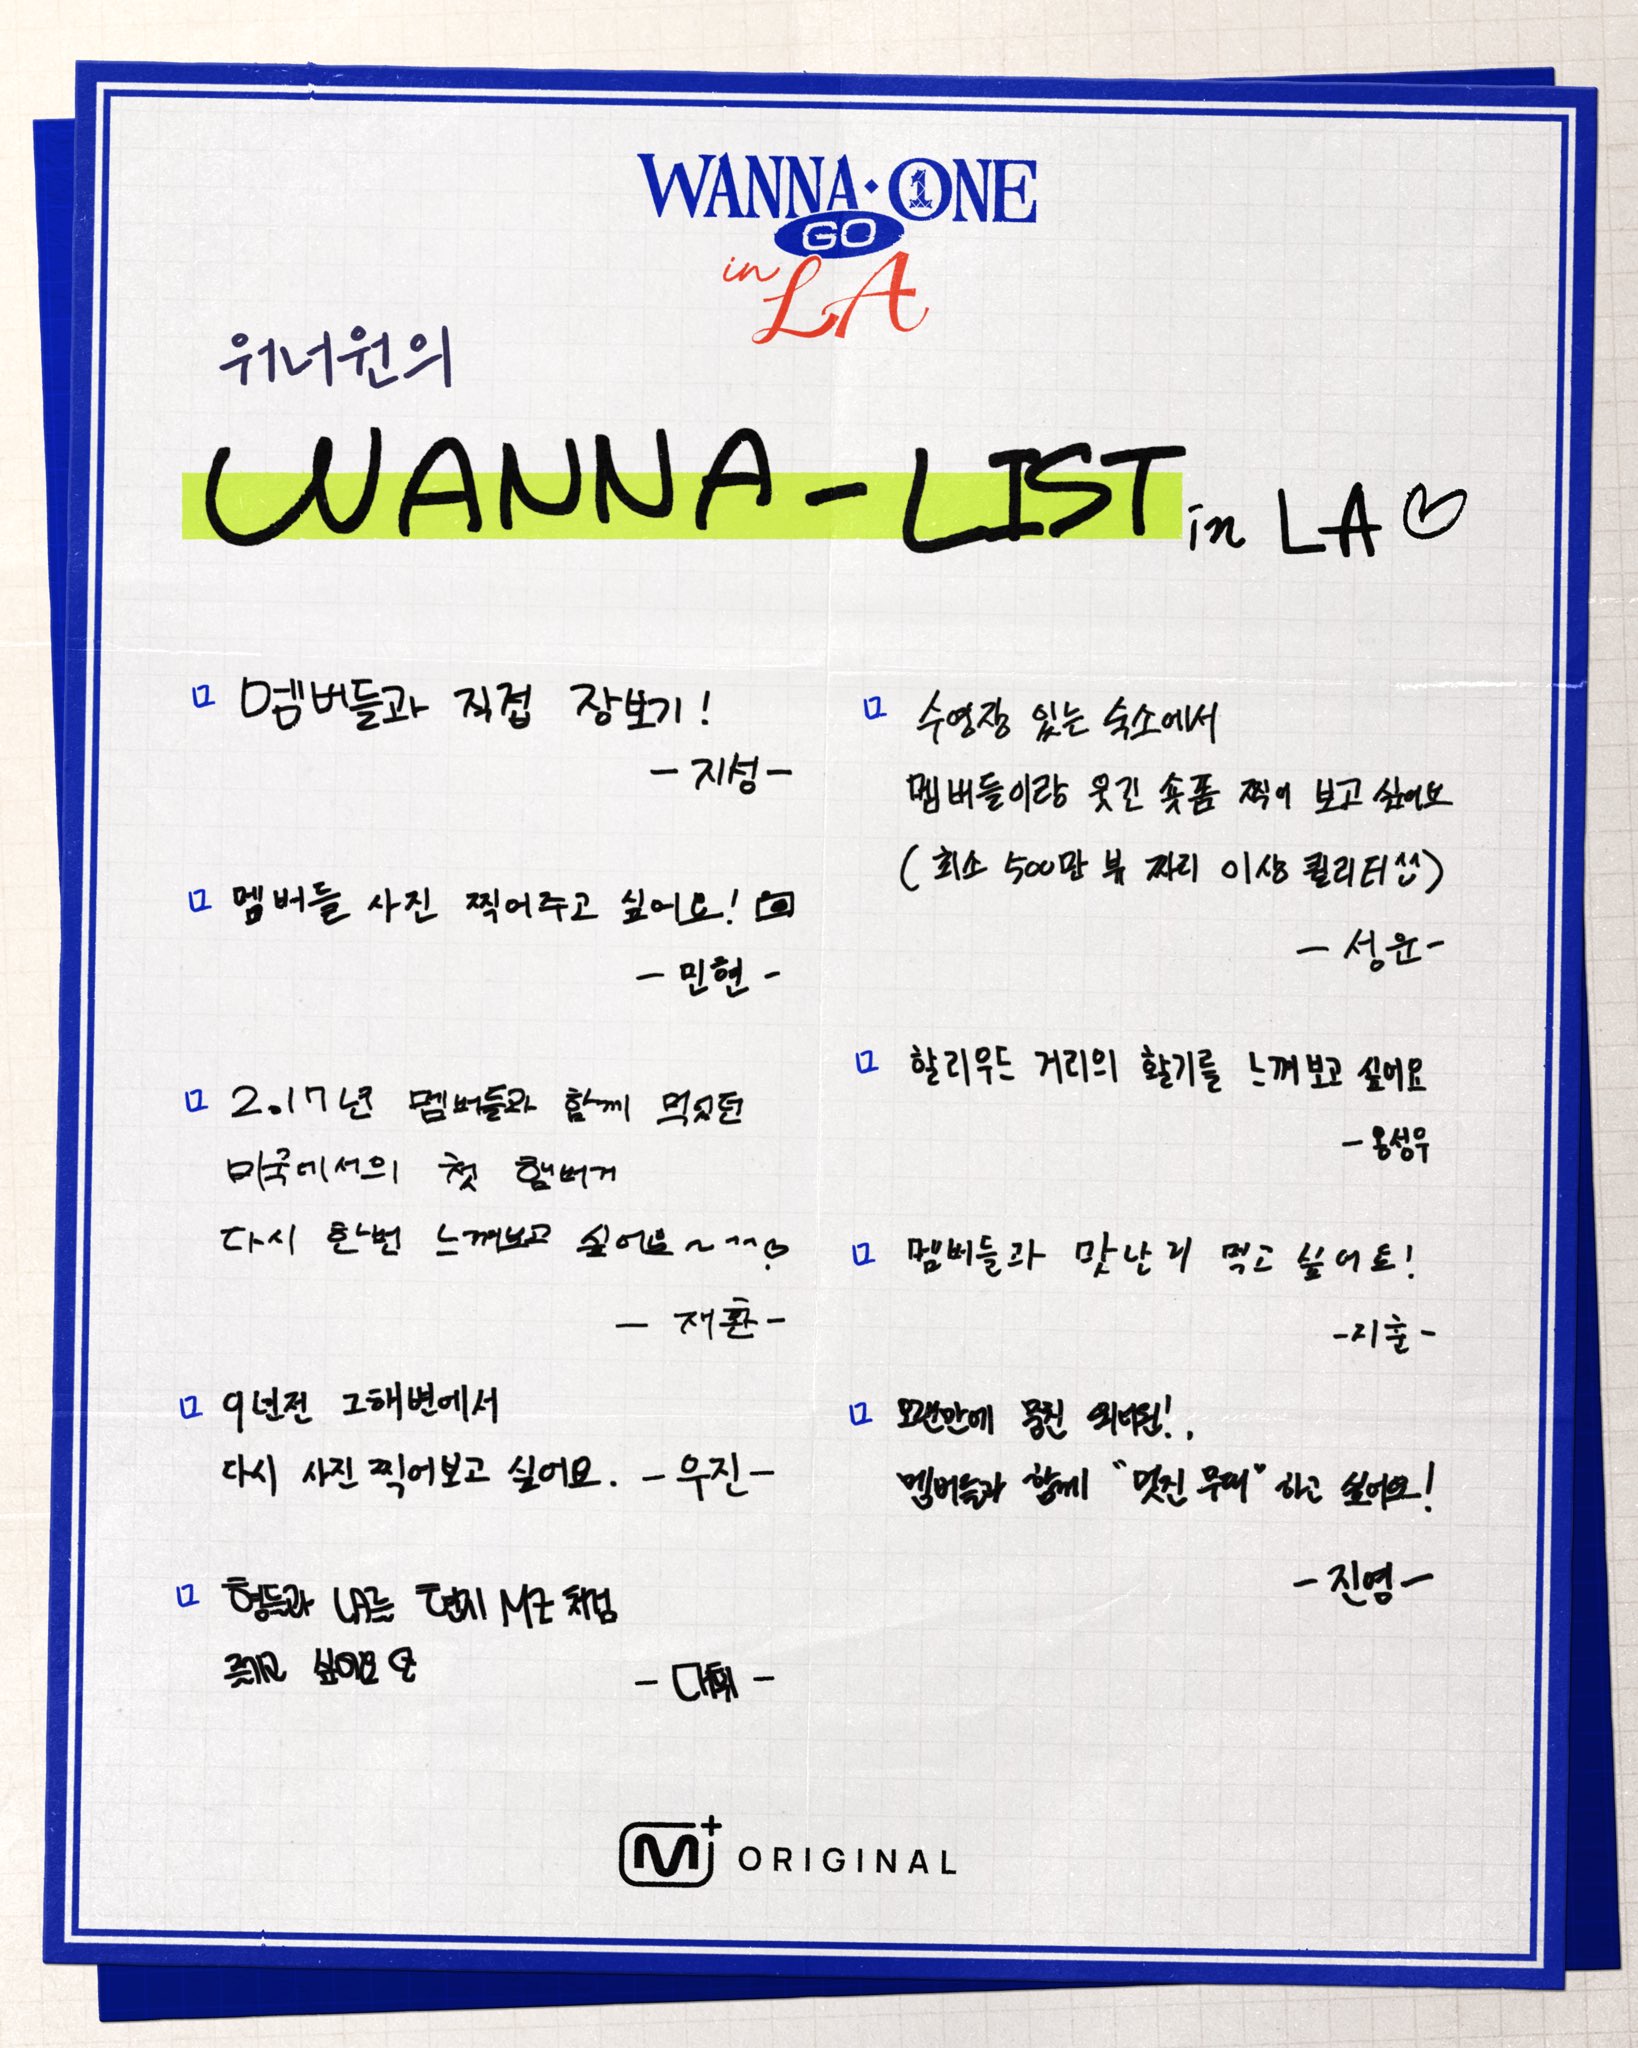 WANNA·ONE
GO
in LA
워너원의
WANNA-LIST in LA
멤버들과 직접 장보기!
-지성-
멤버들 사진 찍어주고 싶어요!
-민현-
2017년 멤버들과 함께 먹었던
미국에서의 첫 햄버거
다시 한번 느껴보고 싶어요~^^
-재환-
9년전 그해변에서
다시 사진 찍어보고 싶어요. -우진-
형들과 LA를 현지 MZ처럼
즐기고 싶어요
-대휘-
수영장 있는 숙소에서
멤버들이랑 웃긴 숏폼 찍어 보고 싶어요
(최소 500만 뷰 짜리 이상 퀄리티)
-성운-
할리우드 거리의 활기를 느껴보고 싶어요
-옹성우
멤버들과 맛난거 먹고 싶어요!
-지훈-
오랜만에 뭉친 워너원!..
멤버들과 함께 "멋진 무대" 하고 싶어요!
-진영-
M+ ORIGINAL